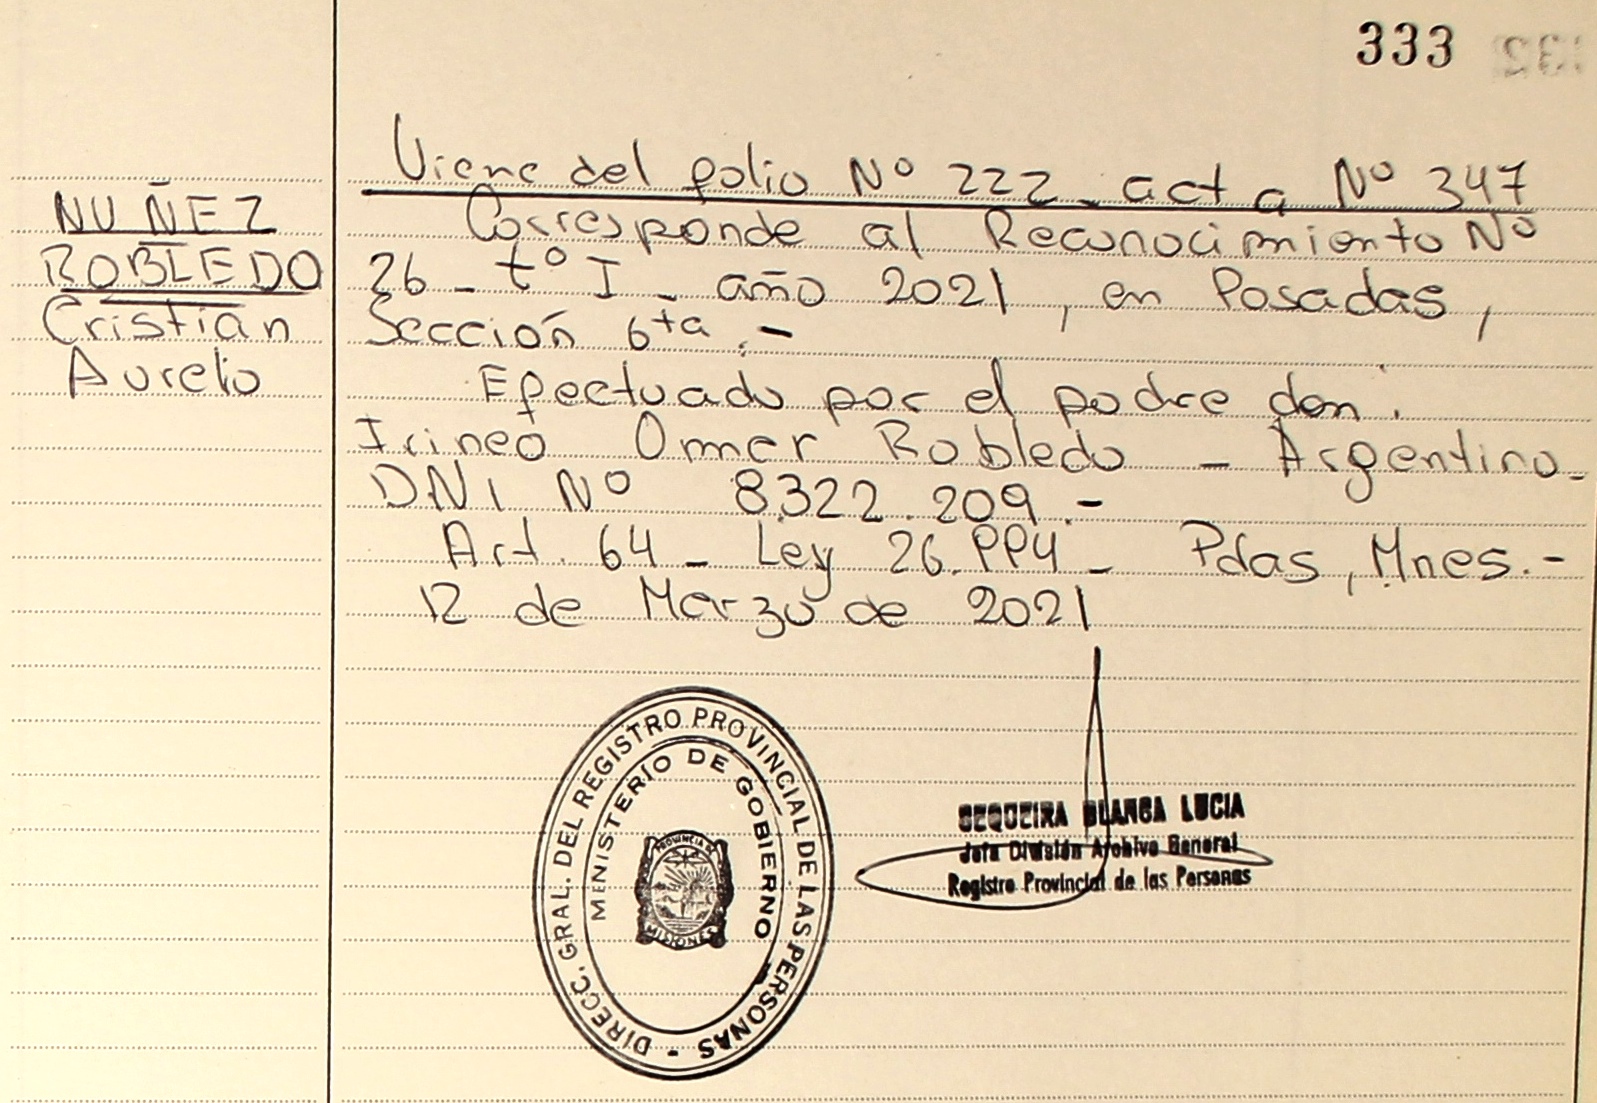 333
NUÑEZ
ROBLEDO
Cristian
Aurelio
Viene del folio Nº 222 - acta Nº 347
Corresponde al Reconocimiento Nº
26 - tº I - año 2021, en Posadas,
Sección 6ta.-
Efectuado por el padre don.
Irineo Omer Robledo - Argentino-
DNI Nº 8.322.209.-
Art. 64 - Ley 26.994 - Pdas, Mnes.-
12 de Marzo de 2021
DIRECC. GRAL. DEL REGISTRO PROVINCIAL DE LAS PERSONAS -
MINISTERIO DE GOBIERNO
PROVINCIA DE
MISIONES
SEQUEIRA BLANCA LUCIA
Jefa División Archivo General
Registro Provincial de las Personas